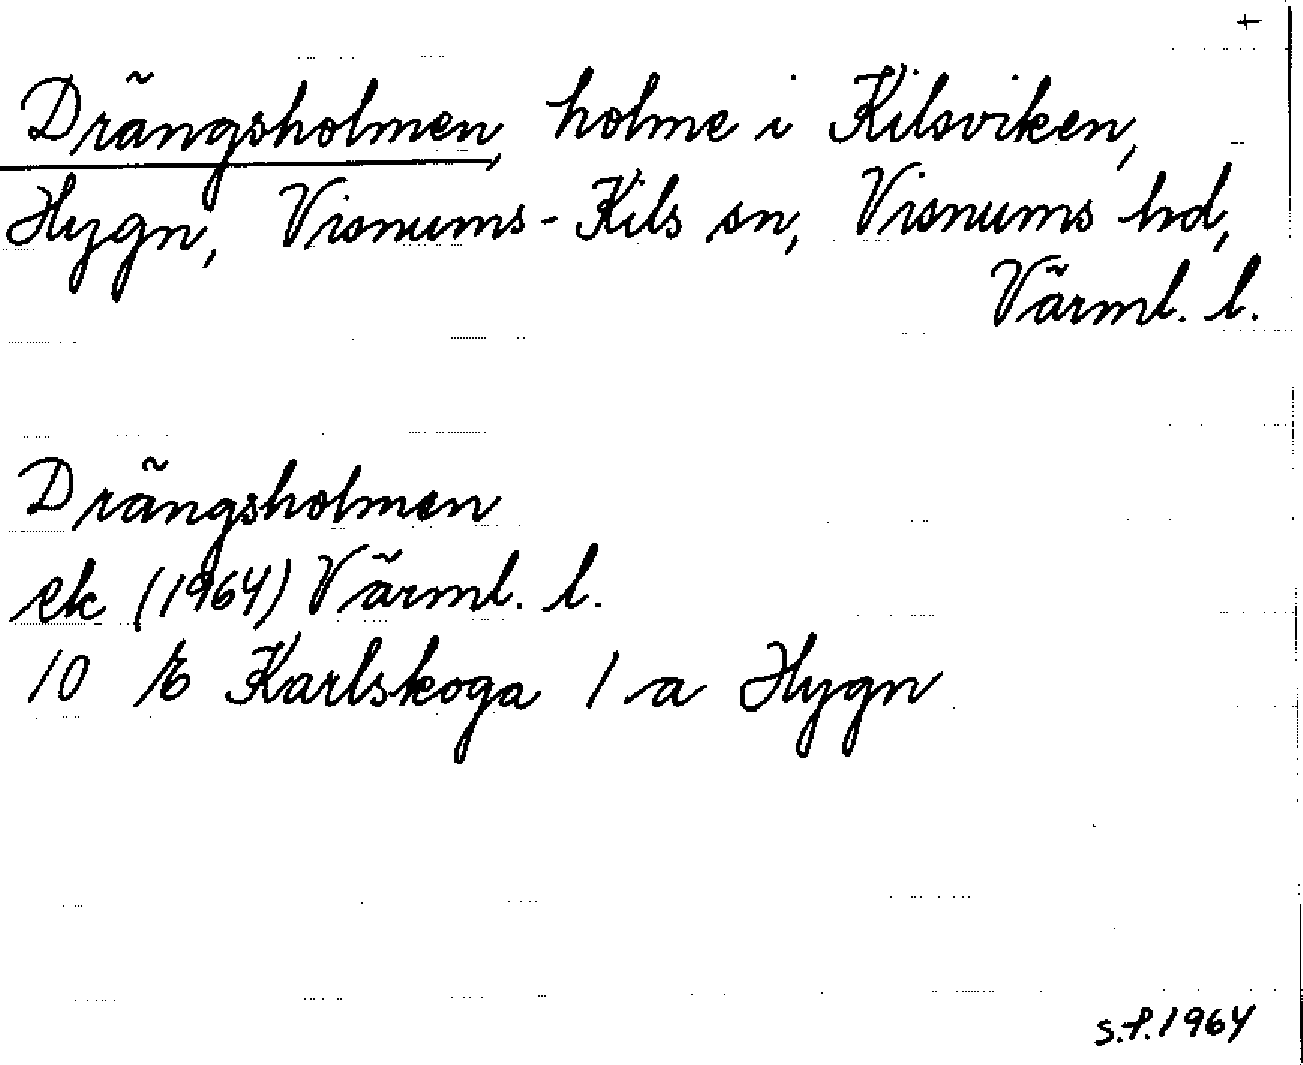 +
Drängsholmen, holme i Kilsviken,
Hygn, Visnums-Kils sn, Visnums hd,
Värml. l.
Drängsholmen
ek (1964) Värml. l.
10 E Karlskoga 1 a Hygn
S.F. 1964